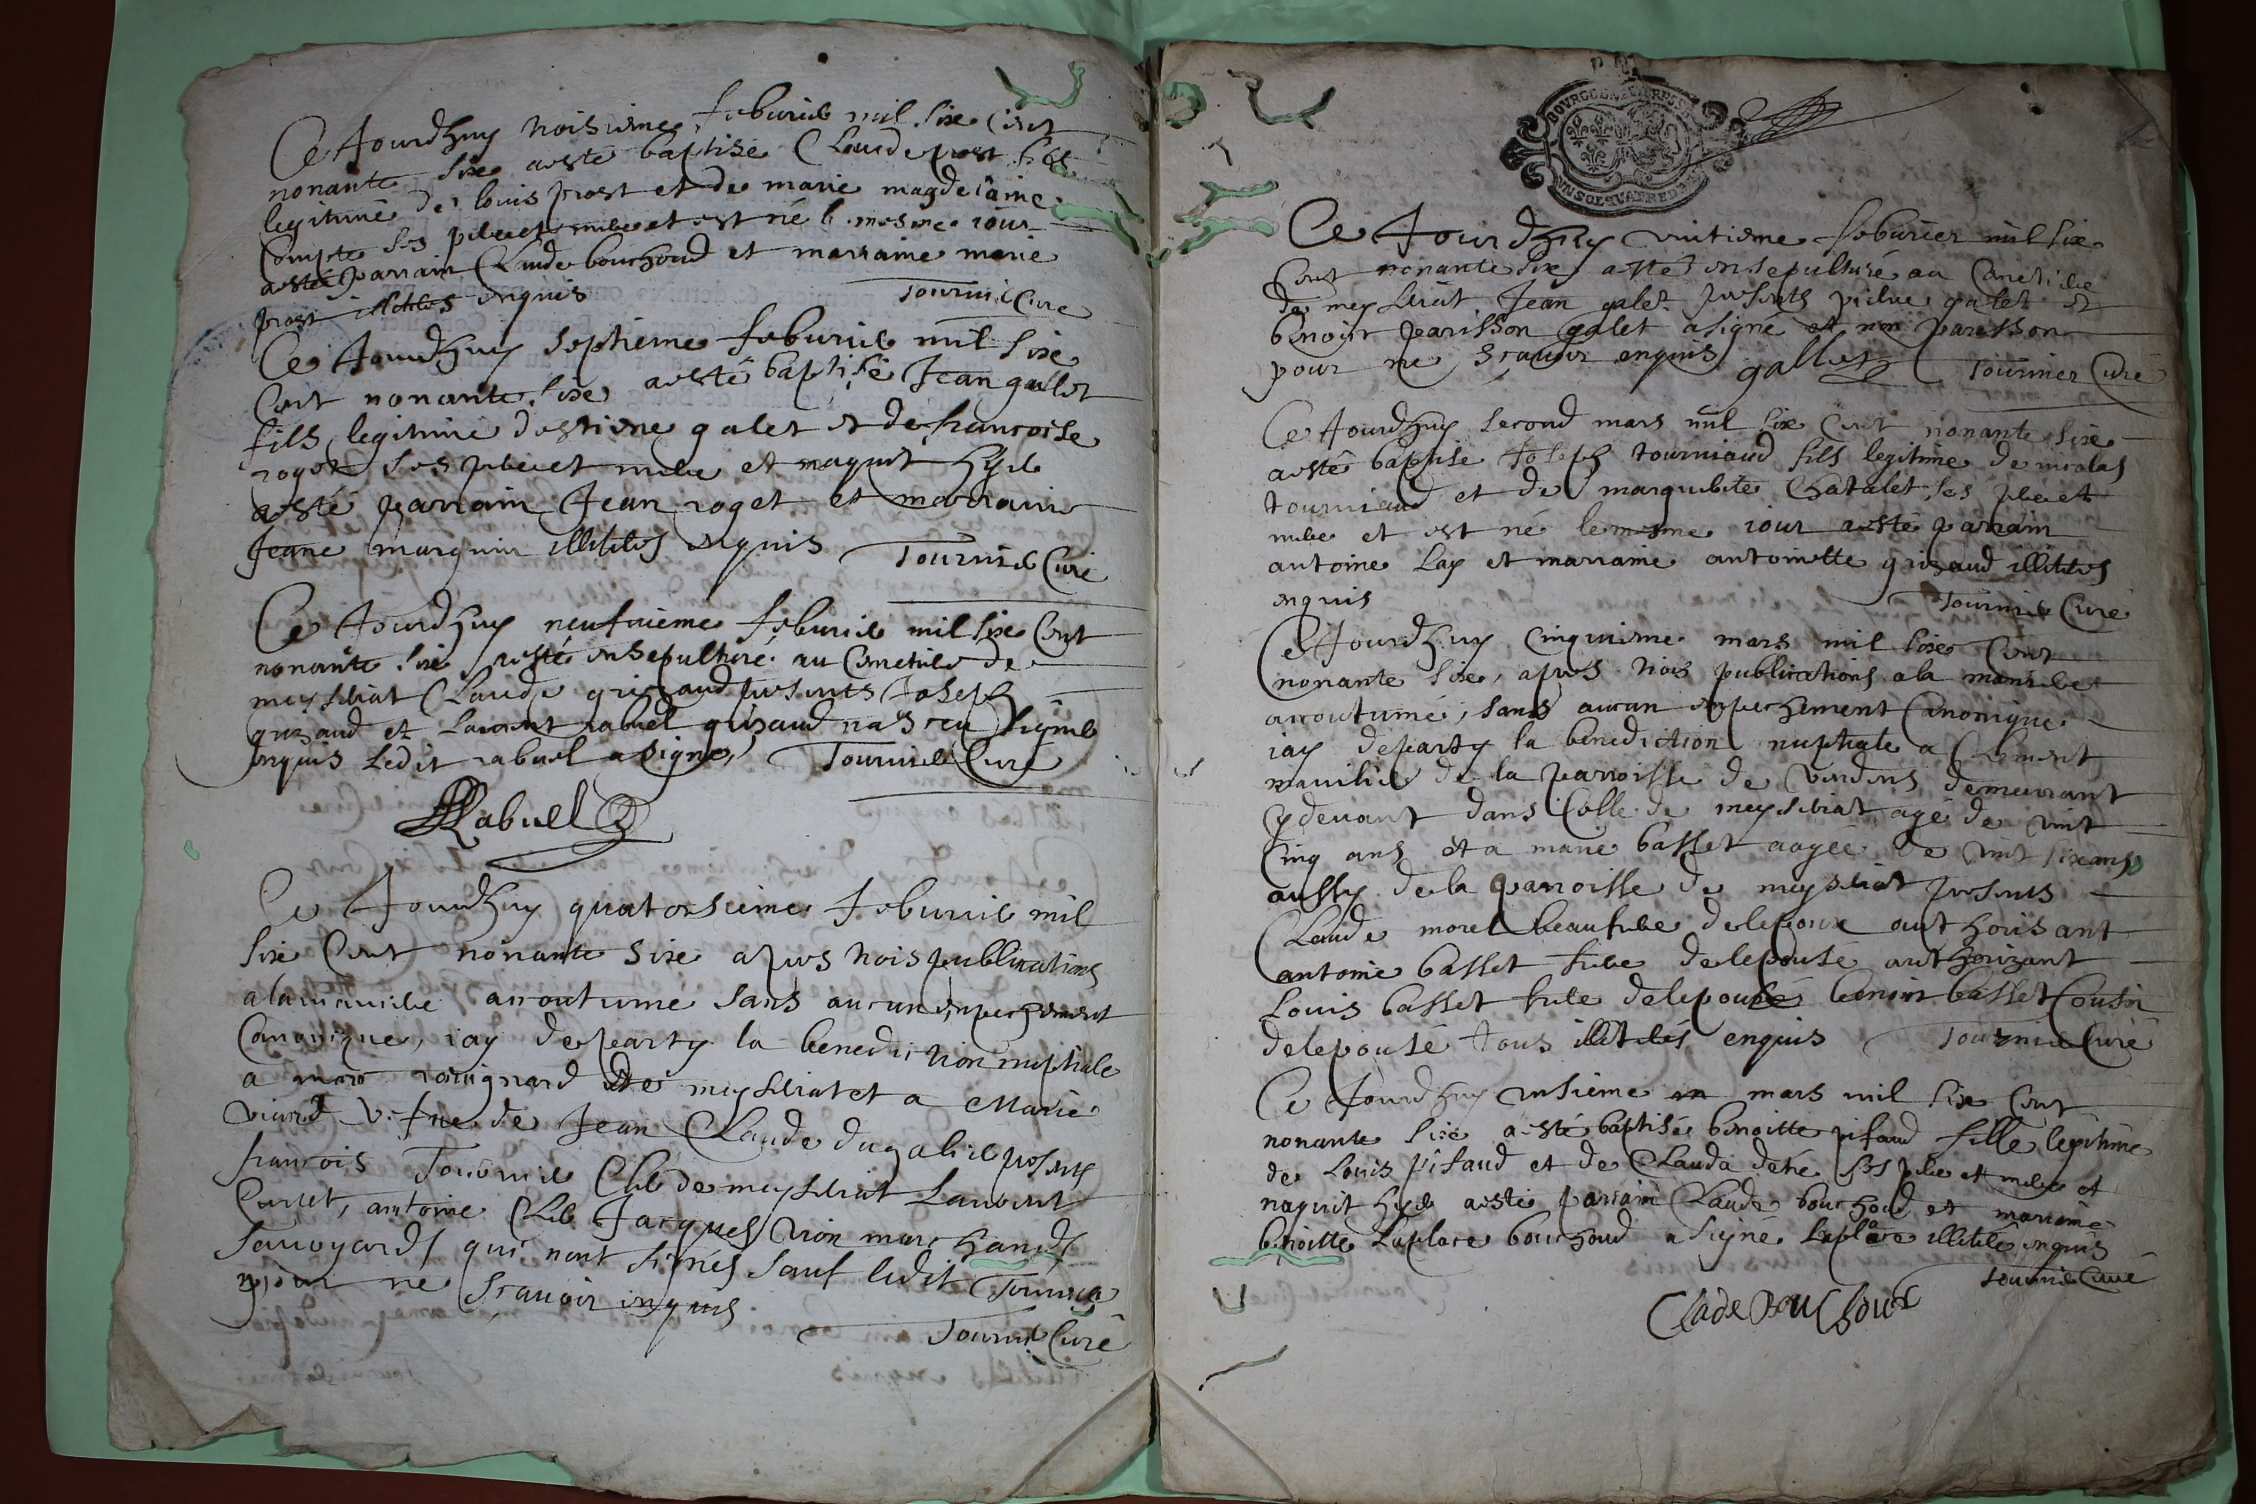 Ce Jourdhuy troisieme feburier mil six cent
nonante six a esté baptisé Claude prost fils
legitime de louis prost et de marie magdelaine
Compte ses pere et mere et est né le mesme iour
a esté parrain Claude bouchoud et marraine marie
prost illiteres enquis Tournier Curé
Ce Jourdhuy septieme feburier mil six
cent nonante six a esté baptisé Jean galet
fils legitime destiene galet et de francoise
roget ses pere et mere et naquit hyer
a esté parrain Jean roget et marraine
Jeane marguin illiteres enquis Tournier Curé
Ce Jourdhuy neufuieme feburier mil six cent
nonante six a esté ensepulturé au Cimetiere de
meyseriat Claude grizaud presents Joseph
grizaud et Laurent rabuel grizaud na sceu signer
enquis Ledit rabuel a signé Tournier Curé
Rabuel
Ce Jourdhuy quatorsieme feburier mil
six Cent nonante six apres trois publications
a la maniere accoutumé sans aucun enpechement
Canonique, iay departy la benediction nuptiale
a de meyseriat et a Marie
viard vefue de Jean Claude dugalier presents
francois Tournier Clerc de meyseriat Laurent
Curtet, antoine Jacques marchands
Sauoyards qui nont signés sauf ledit Tournier
pour ne scauoir enquis
Tournier Curé
BOURGOGNE ET BRESSE
UN SOL QUATRE DEN
Ce Jourdhuy vintieme feburier mil six
Cent nonante six a esté ensepulturé au Cimetiere
de meyseriat Jean galet presents pierre galet et
benoist parisson galet a signé et non parisson
pour ne scauoir enquis gallet Tournier Curé
Ce Jourdhuy second mars mil six Cent nonante six
a esté baptisé Joseph tourniaud fils legitime de nicolas
tourniaud et de marguerite Chatalet ses pere et
mere et est né le mesme iour a esté parrain
antoine Lay et marraine antoinette grizaud illiteres
enquis Tournier Curé
Ce Jourdhuy Cinquieme mars mil six Cent
nonante six, apres trois publications a la maniere
accoutumé, sans aucun enpechement Canonique
iay departy la benediction nuptiale a Clement
de la parroisse de demeurant
cy deuant dans Celle de meyseriat agé de vint
Cinq ans et a marie basset aagée de vint six ans
aussy de la parroisse de meyseriat presents
Claude morel beaufrere delepoux authorisant
antoine basset frere delepousé authorizant
Louis basset frere delepousé benoist basset Cousin
delepousé tous illiterés enquis Tournier Curé
Ce Jourdhuy mars mil six Cent
nonante six a esté baptisée benoitte pifaud fille legitime
de Louis pifaud et de Clauda ses pere et mere et
naquit hyer a esté parrain Claude bouchoud et marraine
benoitte Laplace bouchoud a signé Laplace illiteré enquis
Tournier Curé
Clade Bouchoux